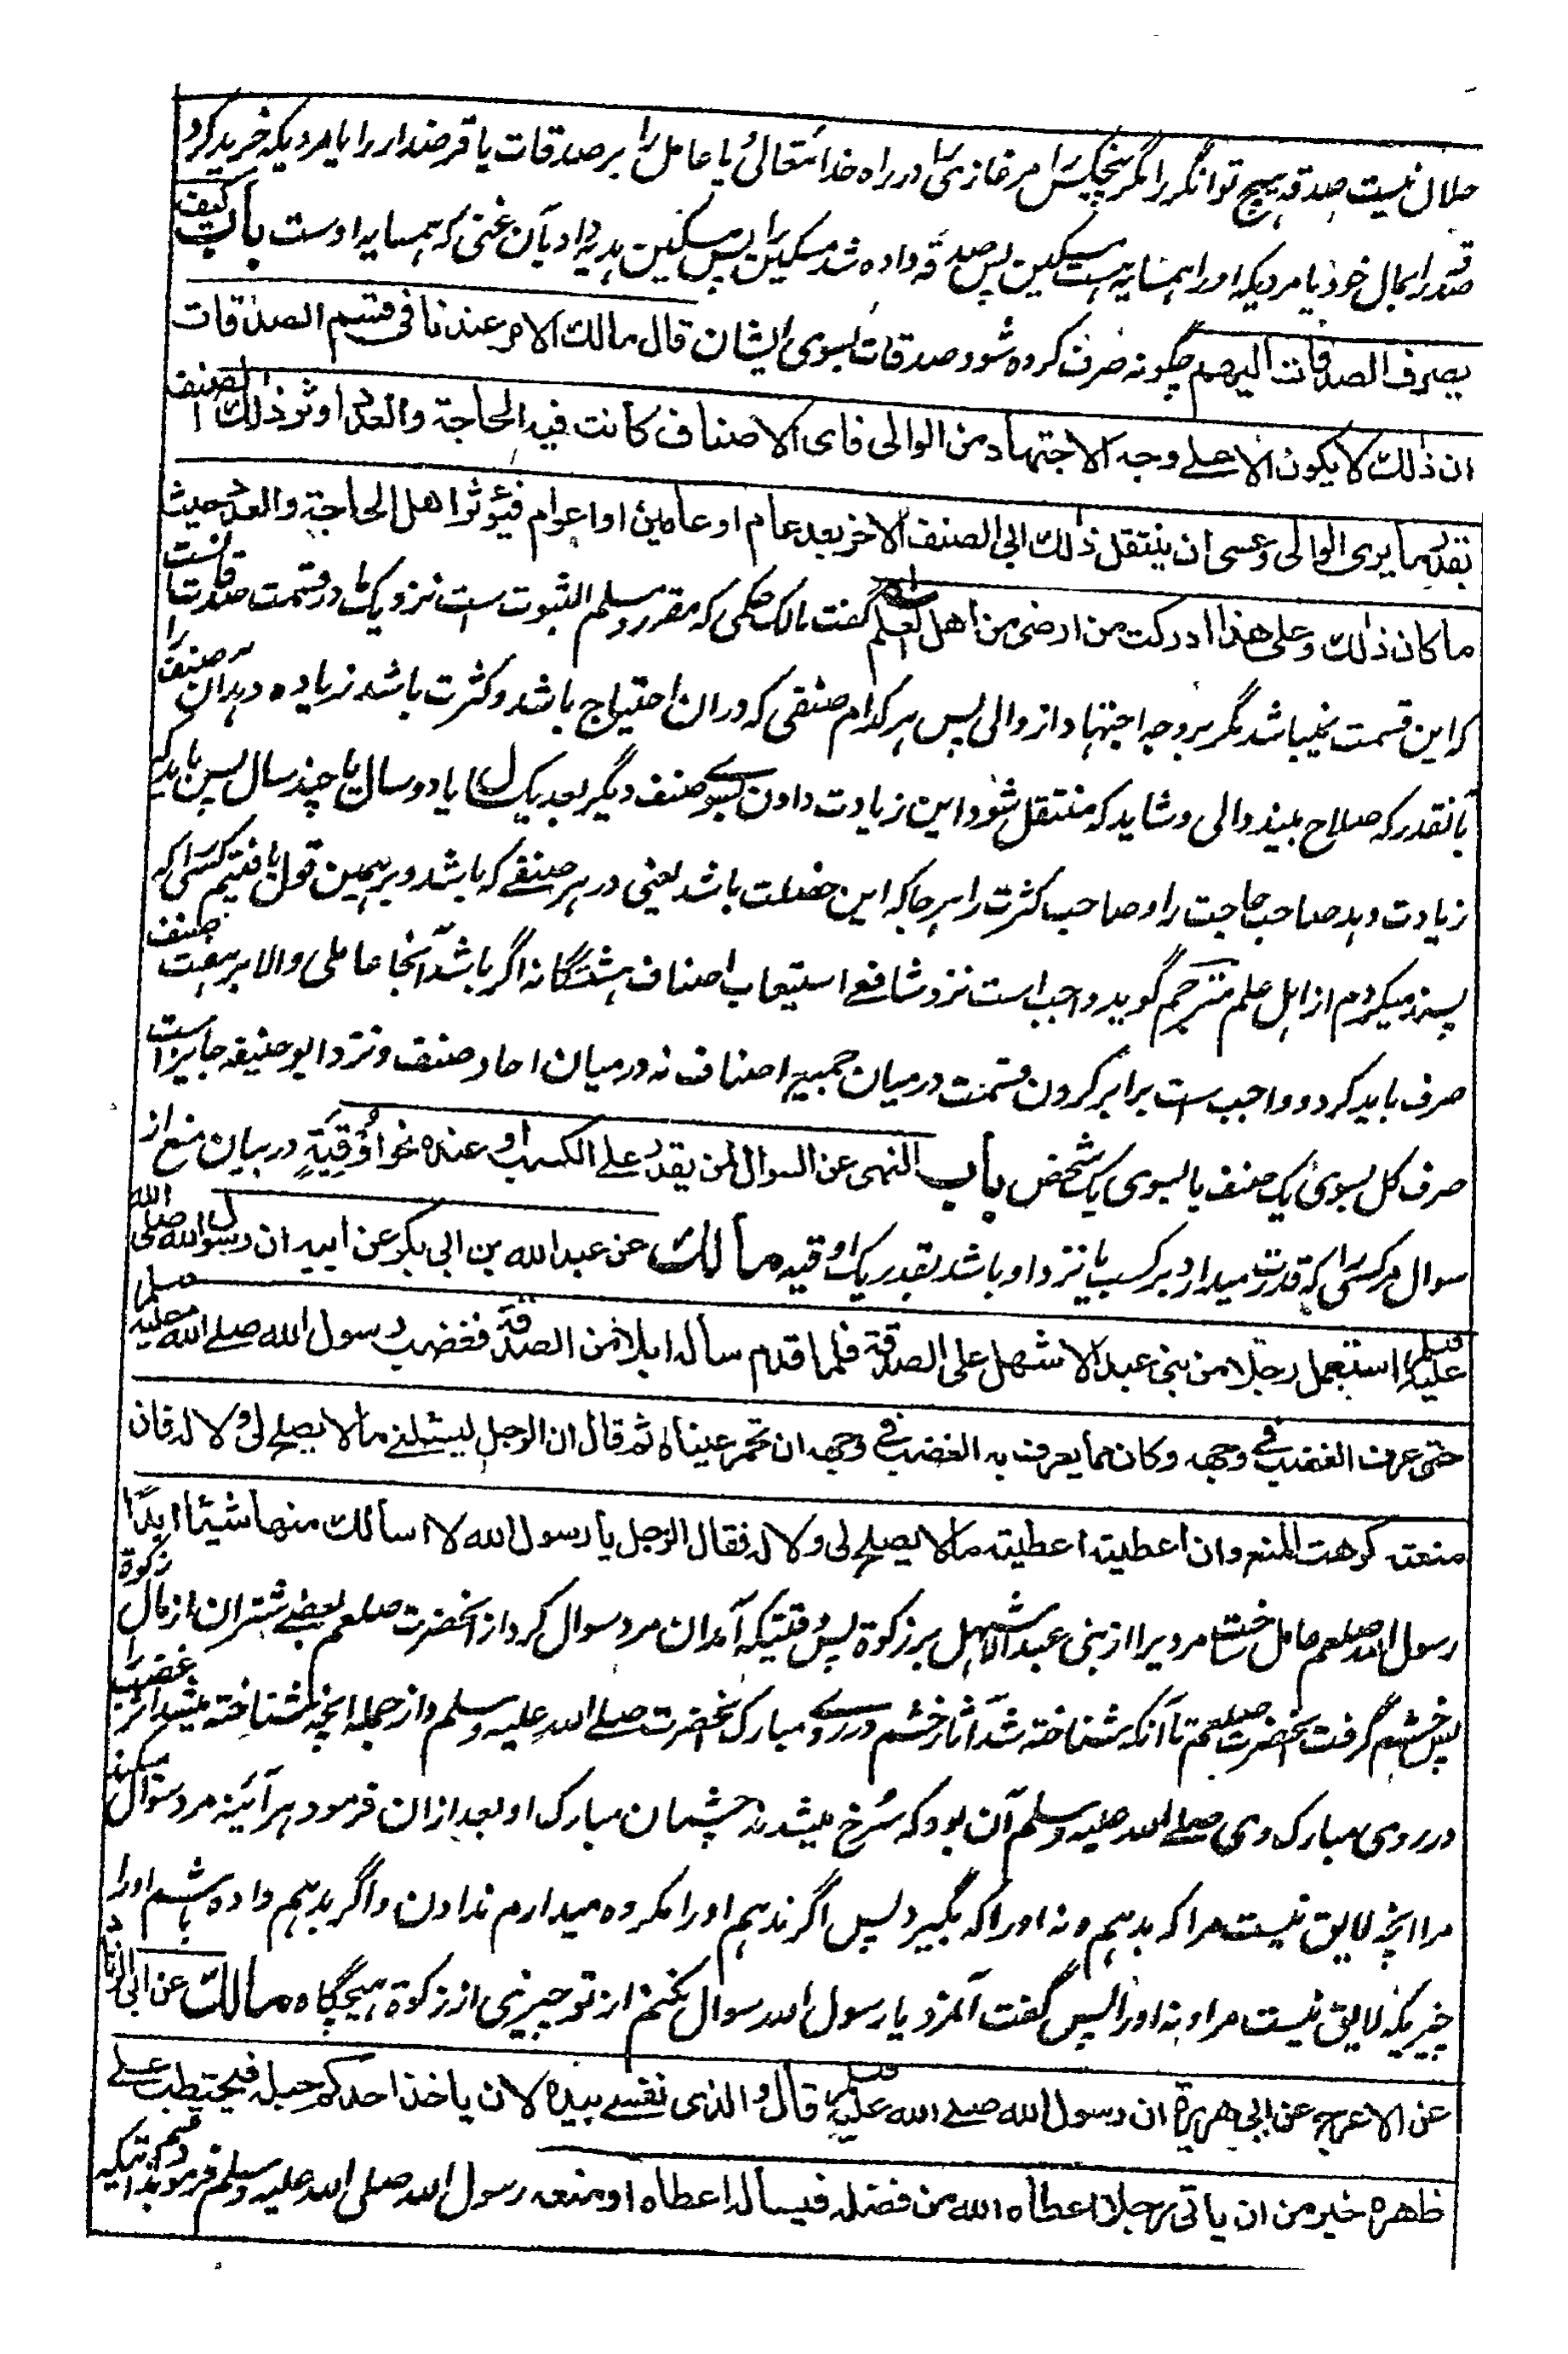 حلال نیست صدقه هیچ توانگر را مگر پنچکس را مر غازی را در راه خدا تعالی و یا عامل را بر صدقات یا قرضدار را یا مردیکه خرید کرد
صدقه را بمال خود یا مردیکه او را همسایه هست مسکین پس صدقه داده شد مسکین را پس مسکین هدیه داد بآن غنی که همسایه اوست باب کیف
یصرف الصدقات الیهم چگونه صرف کرده شود صدقات بسوی ایشان قال مالك الامر عندنا فی قسم الصدقات
ان ذلك لا یکون الا علے وجه الاجتهاد من الوالی فای الاصناف کانت فیه الحاجة والعدد اوثر ذلك الصنف
بقدر ما یری الوالی وعسی ان ینتقل ذلك الی الصنف الاخر بعد عام او عامین او اعوام فیؤثر اهل الحاجة والعدد حیث
ما کان ذلك وعلی هذا ادرکت من ارضی من اهل العلم گفت مالک حکمی که مقرر و مسلم الثبوت است نزدیک ما در قسمت صدقات آنست
که این قسمت نمیباشد مگر بر وجه اجتهاد از والی پس هر کدام صنفی که دران احتیاج باشد و کثرت باشد زیاده دهد آن صنف را
بآنقدر که صلاح بیند والی و شاید که منتقل شود این زیادت دادن بسوے صنف دیگر بعد یک سال یا دو سال یا چند سال پس باید که
زیادت دهد صاحب حاجت را و صاحب کثرت را هر جا که این خصلت باشد یعنی در هر صنفے که باشد و بر همین قول یافتیم کسی را که
پسند میکردم از اهل علم مترجم گوید واجب است نزد شافعے استیعاب اصناف هشتگانه اگر باشد آنجا عاملی والا بر هفت صنف
صرف باید کرد و واجب ست برابر کردن قسمت درمیان جمیع اصناف نه درمیان احاد صنف و نزد ابو حنیفه جایز است
صرف کل بسوی یک صنف یا بسوی یک شخص باب النهی عن السوال لمن یقدر علے الکسب او عنده نحو اُوْقِیَّةٍ در بیان منع از
سوال مر کسی را که قدرت میدارد بر کسب یا نزد او باشد بقدر یک اوقیه مالك عن عبد الله بن ابی بکر عن ابیه ان رسول الله صلی الله
علیه وسلم استعمل رجلا من بنی عبد الاشهل علی الصدقة فلما قدم ساله ابلا من الصدقة فغضب رسول الله صلے الله علیه وسلم
حتی عرف الغضب فے وجهه وکان مما یعرف به الغضب فے وجهه ان تحمر عیناه ثم قال ان الرجل لیسئلنے مالا یصلح لی ولا له فان
منعته کرهت المنع وان اعطیته اعطیته مالا یصلح لی ولا له فقال الرجل یا رسول الله لا اسالك منها شیئا ابدًا
رسول الله صلعم عامل ساخت مردیرا از بنی عبد الاشهل بر زکوة پس وقتیکه آمد ان مرد سوال کرد از آنحضرت صلعم بعضے شتران از مال زکوة
پس خشم گرفت آنحضرت صلعم تا آنکه شناخته شد آثار خشم در روے مبارک آنحضرت صلے الله علیه وسلم و از جمله انچه شناخته میشد اثر غضب را
در روی مبارک وی صلے الله علیه وسلم آن بود که سُرخ میشدند چشمان مبارک او بعد ازان فرمود هر آئینه مرد سوال میکند
مرا انچه لایق نیست مرا که بدهم و نه او را که بگیرد پس اگر ندهم او را مکروه میدارم ندادن و اگر بدهم داده باشم او را
چیزیکه لایق نیست مرا و نه او را پس گفت آنمرد یا رسول الله سوال نکنم از تو چیزی از زکوة هیچگاه مالك عن ابی الزناد
عن الاعرج عن ابی هریرة ان رسول الله صلے الله علیه وسلم قال والذی نفسے بیده لان یاخذ احدکم حبله فیحتطب علے
ظهره خیر من ان یاتی رجلا اعطاه الله من فضله فیساله اعطاه او منعه رسول الله صلی الله علیه وسلم فرمود قسم بذاتیکه